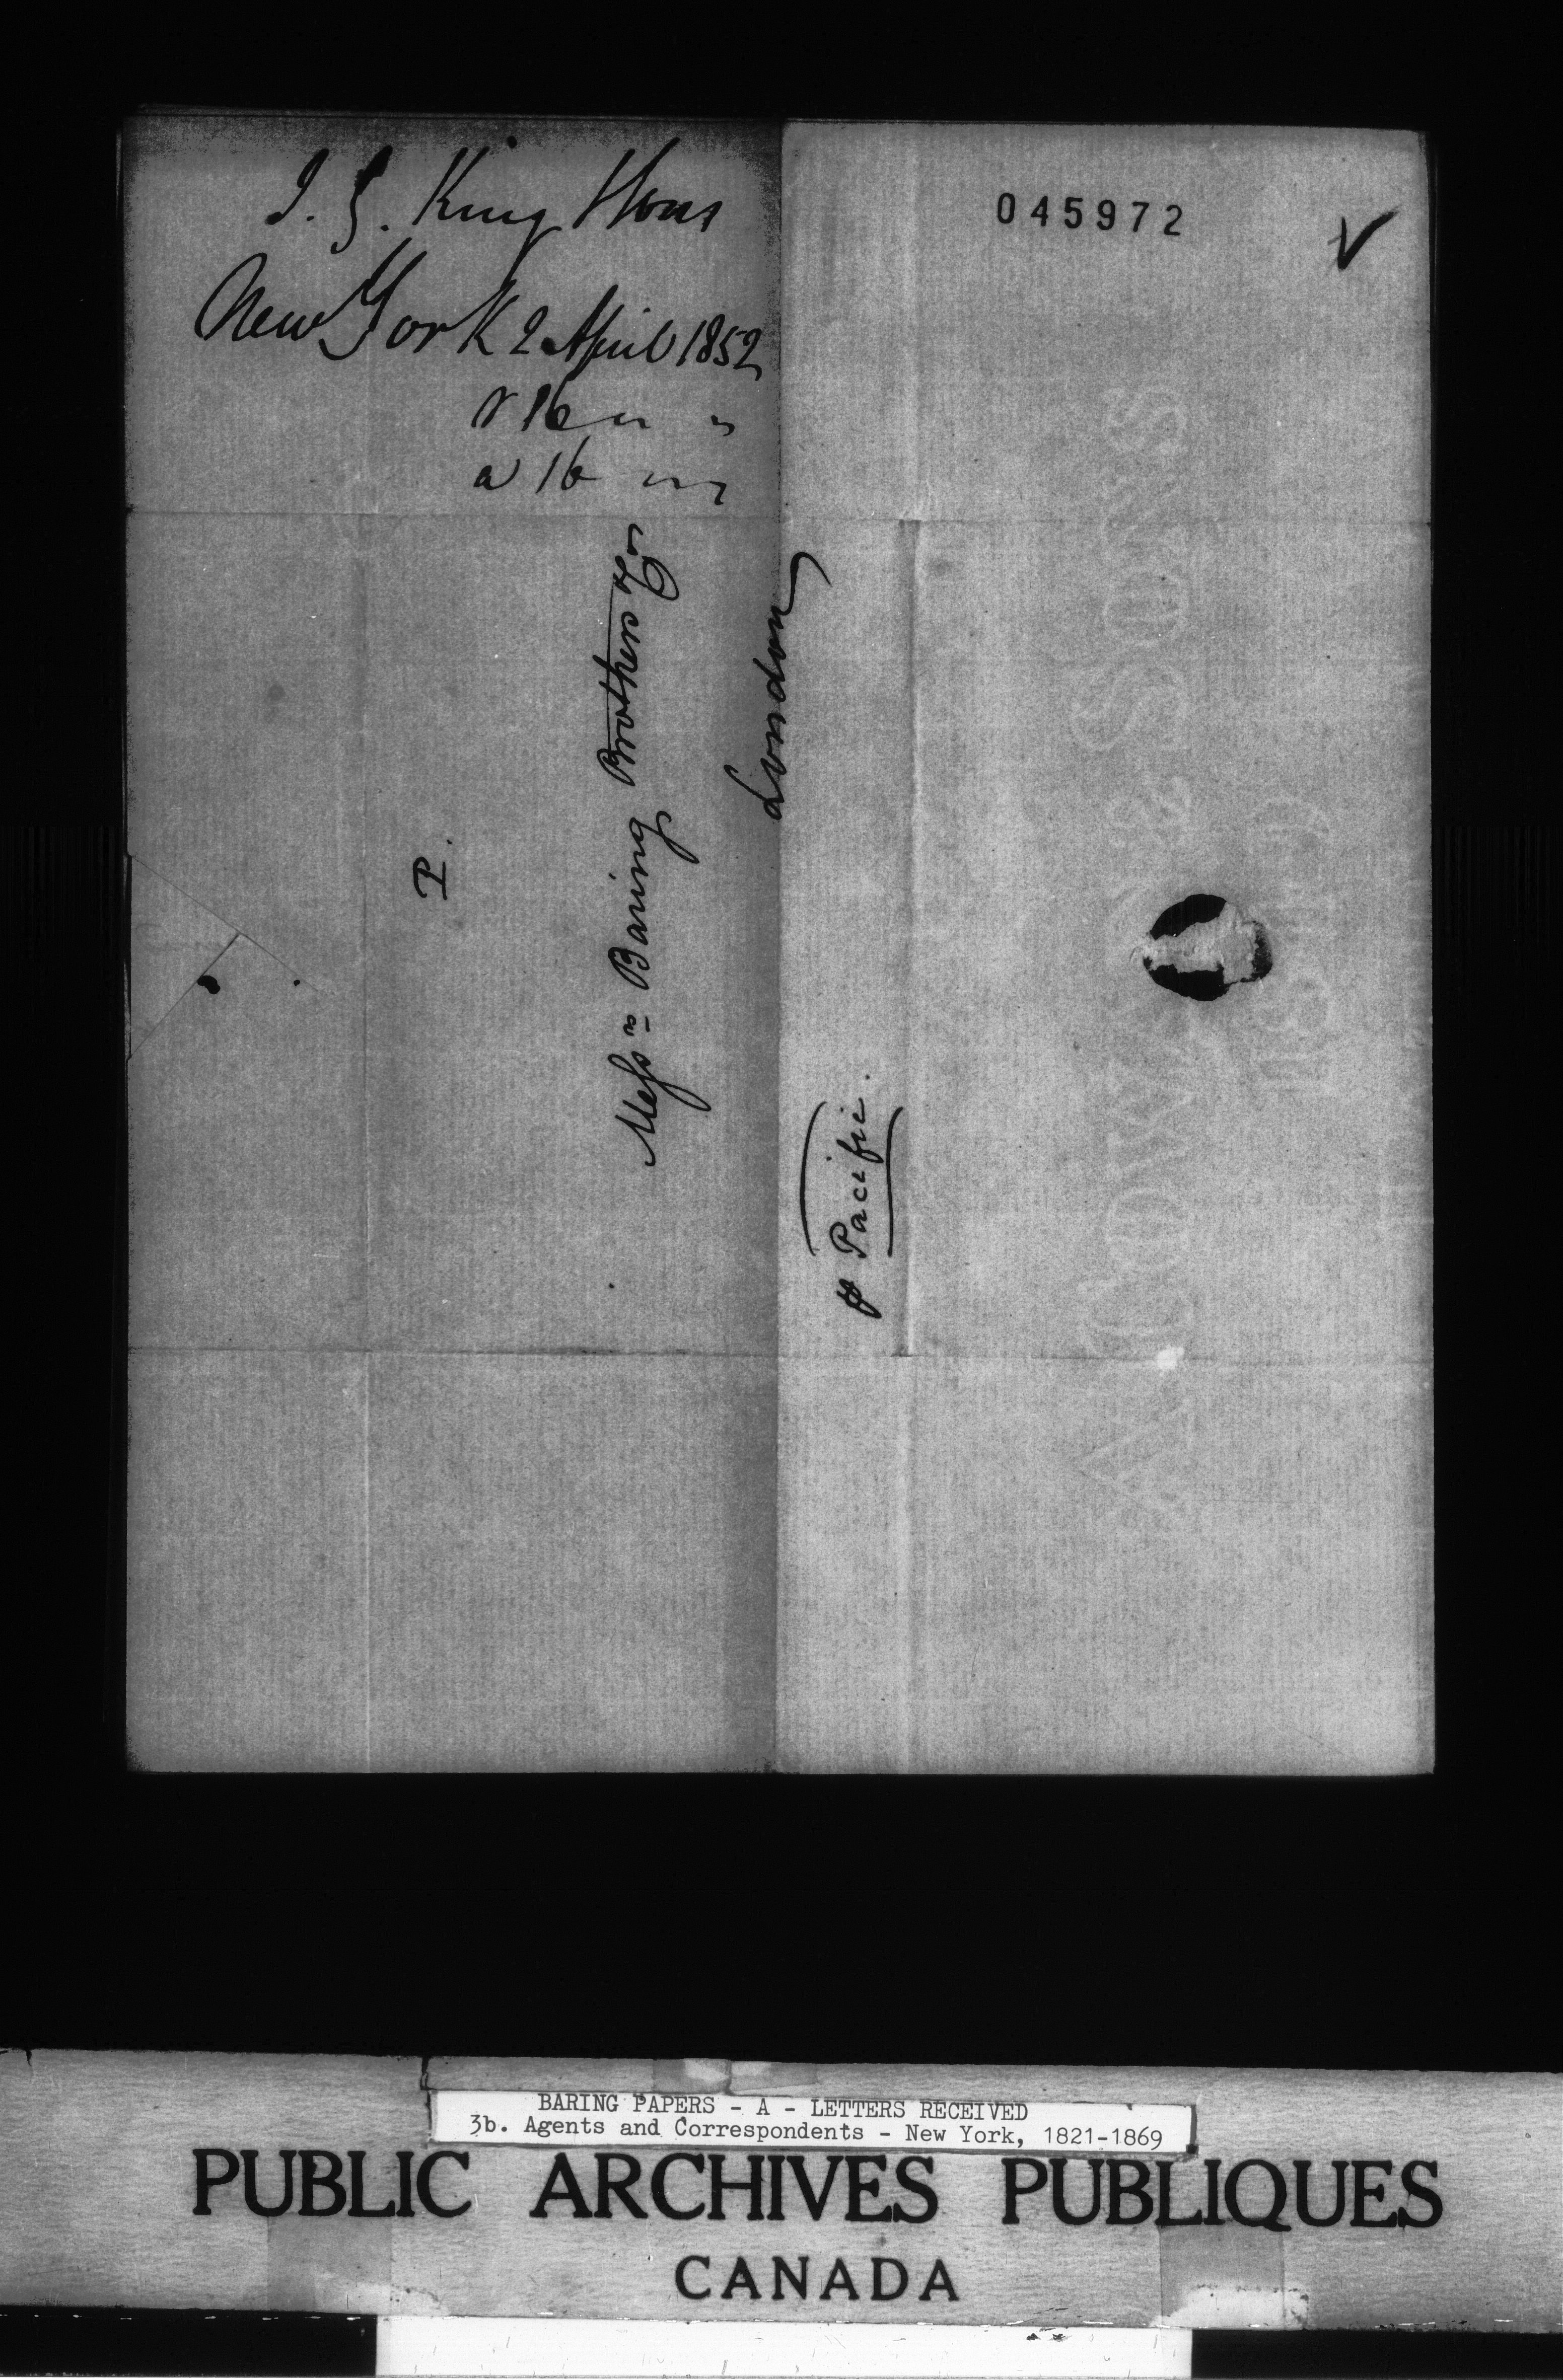 J. G. King & Sons
New York 2 April 1852
r 16 " "
a 16 " "
045972
P.
Mess.rs Baring Brothers & Co
London
p Pacific.
BARING PAPERS - A - LETTERS RECEIVED
3b. Agents and Correspondents - New York, 1821-1869
PUBLIC ARCHIVES PUBLIQUES
CANADA